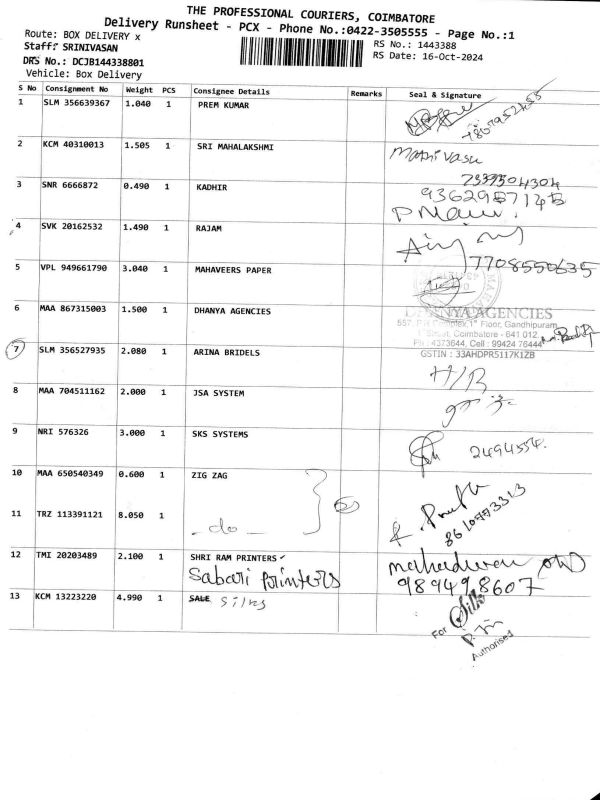 THE PROFESSIONAL COURIERS, COIMBATORE
Delivery Runsheet - PCX - Phone No.:0422-3505555 - Page No.:1
Route: BOX DELIVERY x
RS No.: 1443388
Staff: SRINIVASAN
RS Date: 16-Oct-2024
DRS No.: DCJB144338801
Vehicle: Box Delivery
S No Consignment No Weight PCS Consignee Details Remarks Seal & Signature
1 SLM 356639367 1.040 1 PREM KUMAR
2 KCM 40310013 1.505 1 SRI MAHALAKSHMI Mathivasu
7339504304
3 SNR 6666872 0.490 1 KADHIR
4 SVK 20162532 1.490 1 RAJAM
7708550635
5 VPL 949661790 3.040 1 MAHAVEERS PAPER
6 MAA 867315003 1.500 1 DHANYA AGENCIES
DHANYA AGENCIES
1st Floor, Gandhipuram
Street, Coimbatore - 641 012
Ph : 4373644, Cell : 99424 76444
GSTIN : 33AHDPR5117K1ZB
7 SLM 356527935 2.080 1 ARINA BRIDELS
8 MAA 704511162 2.000 1 JSA SYSTEM
9 NRI 576326 3.000 1 SKS SYSTEMS
2494554.
10 MAA 650540349 0.600 1 ZIG ZAG
11 TRZ 113391121 8.050 1 - do -
8610973313
12 TMI 20203489 2.100 1 SHRI RAM PRINTERS
Sabari Printers
9894998607
13 KCM 13223220 4.990 1 SALE Silks
For Silk
Authorised